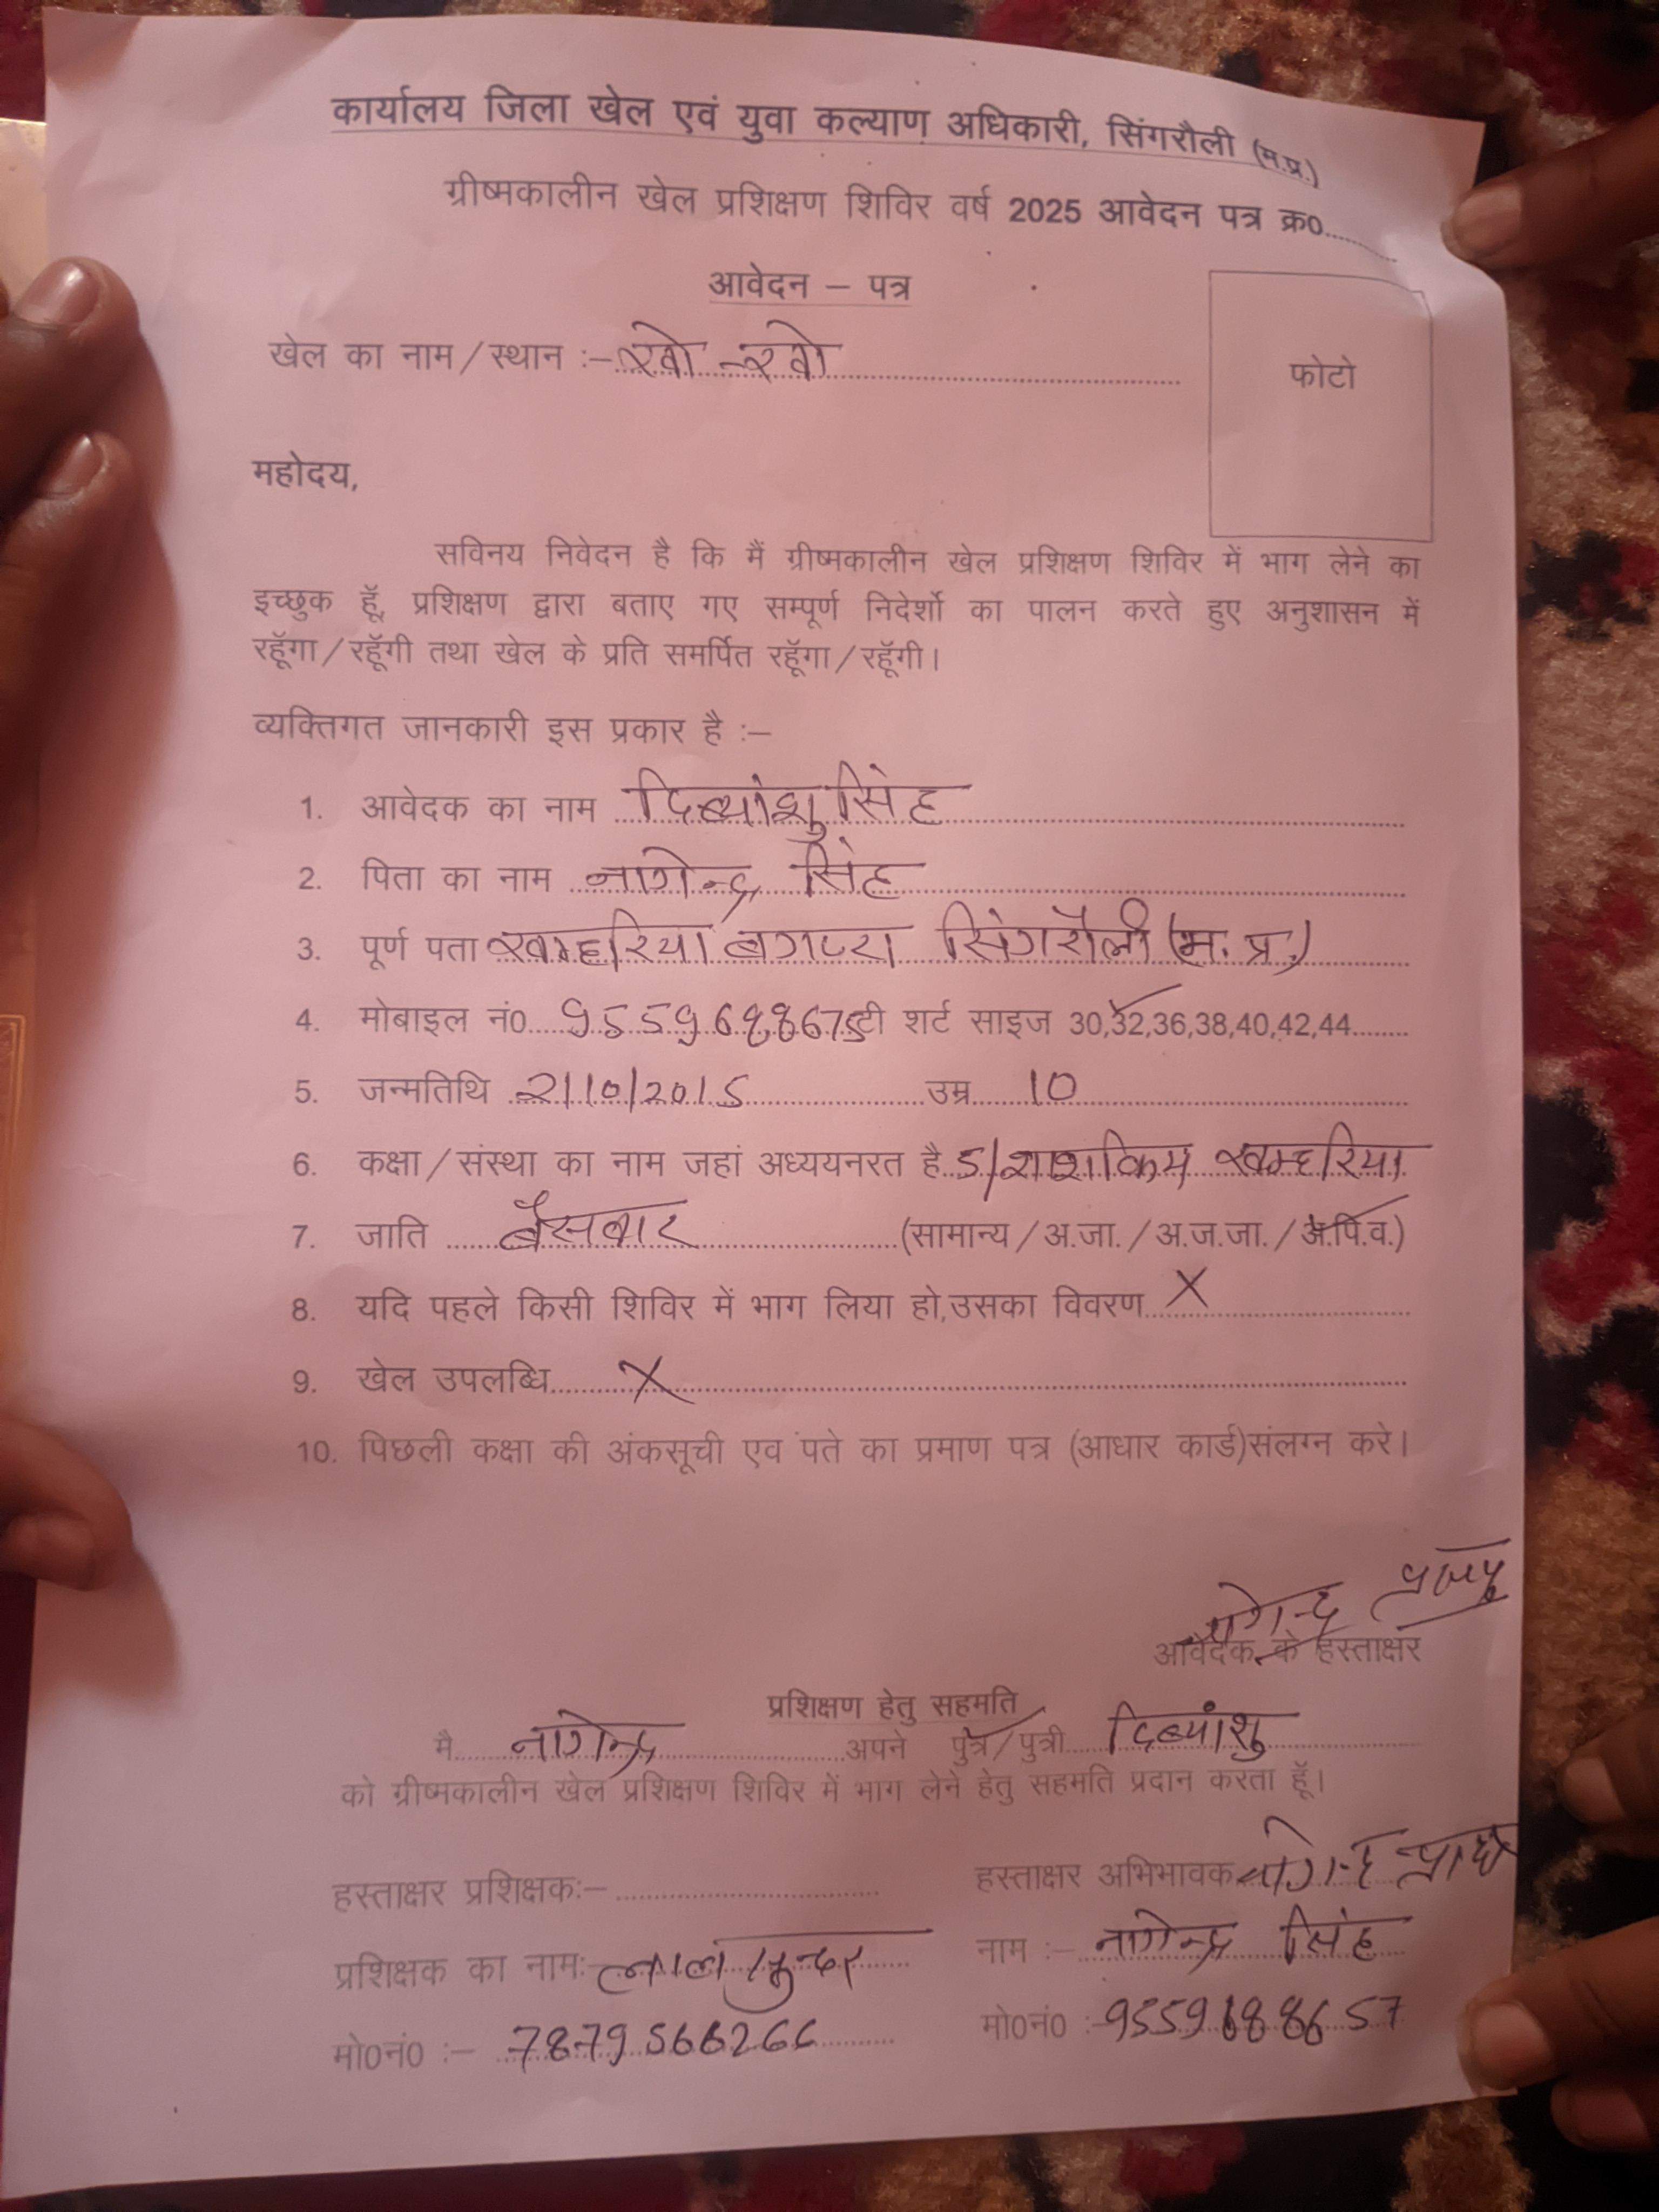 कार्यालय जिला खेल एवं युवा कल्याण अधिकारी, सिंगरौली (म.प्र.)
ग्रीष्मकालीन खेल प्रशिक्षण शिविर वर्ष 2025 आवेदन पत्र क्र0..........
आवेदन – पत्र
खेल का नाम/स्थान :– खो-खो
फोटो
महोदय,
सविनय निवेदन है कि मैं ग्रीष्मकालीन खेल प्रशिक्षण शिविर में भाग लेने का
इच्छुक हूॅं, प्रशिक्षण द्वारा बताए गए सम्पूर्ण निदेर्शो का पालन करते हुए अनुशासन में
रहूॅंगा/रहूॅंगी तथा खेल के प्रति समर्पित रहूॅंगा/रहूॅंगी।
व्यक्तिगत जानकारी इस प्रकार है :–
1. आवेदक का नाम दिब्यांशु सिंह
2. पिता का नाम नागेन्द्र सिंह
3. पूर्ण पता खम्हरिया सिंगरौली (म. प्र.)
4. मोबाइल नं0 टी शर्ट साइज 30,32,36,38,40,42,44........
5. जन्मतिथि 2/10/2015 उम्र 10
6. कक्षा/संस्था का नाम जहां अध्ययनरत है 5/ खम्हरिया
7. जाति बैसवार (सामान्य/अ.जा./अ.ज.जा./अ.पि.व.)
8. यदि पहले किसी शिविर में भाग लिया हो,उसका विवरण X
9. खेल उपलब्धि X
10. पिछली कक्षा की अंकसूची एव पते का प्रमाण पत्र (आधार कार्ड)संलग्न करे।
आवेदक के हस्ताक्षर
प्रशिक्षण हेतु सहमति
मै नागेन्द्र अपने पुत्र/पुत्री दिब्यांशु
को ग्रीष्मकालीन खेल प्रशिक्षण शिविर में भाग लेने हेतु सहमति प्रदान करता हूॅं।
हस्ताक्षर प्रशिक्षकः– हस्ताक्षर अभिभावक
प्रशिक्षक का नामः लाल सुन्दर नाम :– नागेन्द्र सिंह
मो0नं0 :– 7879566266 मो0नं0 :– 9559688657